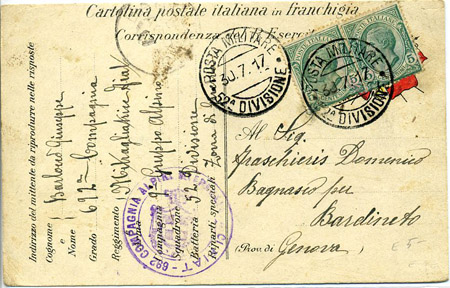 Cartolina postale italiana in franchigia
Corrispondenza del R. Esercito
POSTA MILITARE
30.7.17
52A DIVISIONE
POSTA MILITARE
30.7.17
52A DIVISIONE
POSTE ITALIANE
5
Al Sig.
Fraschieris Domenico
Bagnasco per
Bardineto
(Prov. di
Genova
Indirizzo del mittente da riprodurre nelle risposte
Cognome e Nome Giuseppe
Grado 692a Compagnia
Reggimento Mitragliatrici Fiat
Compagnia Gruppo Alpino
Squadrone
Batteria 52 Divisione
Riparti speciali Zona di
FIAT - 692 COMPAGNIA